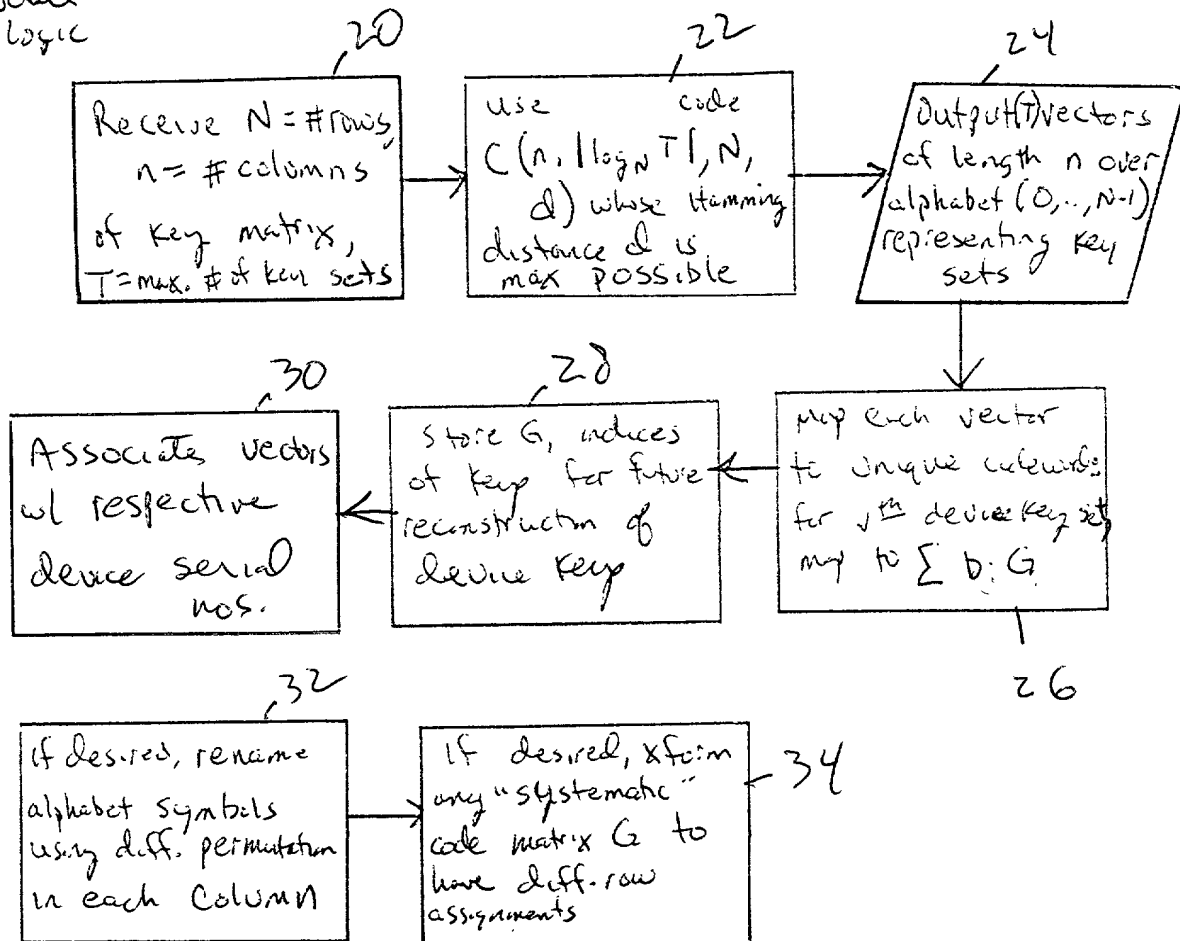 logic
20
Receive N = # rows,
n = # columns
of key matrix,
T = max. # of key sets
22
use code
C (n, ⌈log_N T⌉, N,
d) whose Hamming
distance d is
max possible
24
Output (T) vectors
of length n over
alphabet (0,..,N-1)
representing key
sets
30
Associates vectors
w/ respective
device serial
nos.
28
Store G, indices
of keys for future
reconstruction of
device keys
Map each vector
to unique codewords
for vth device key set,
map to Σ bᵢ Gᵢ
26
32
If desired, rename
alphabet symbols
using diff. permutation
in each column
If desired, xform
any "systematic"
code matrix G to
have diff. row
assignments
34